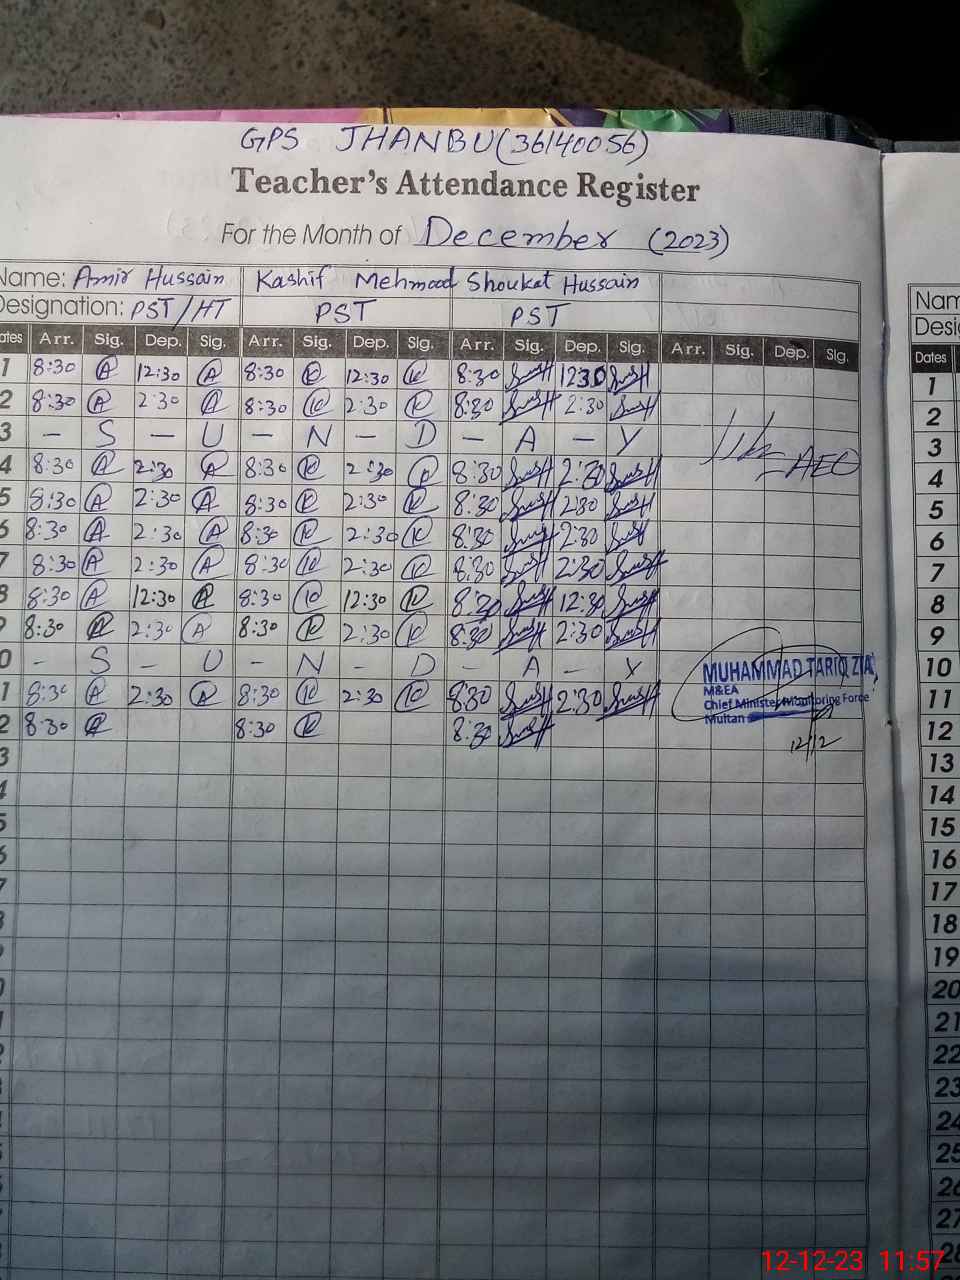 GPS JHANBU(36140056)
Teacher's Attendance Register
For the Month of December (2023)
Name: Amir Hussain Kashif Mehmood Shoukat Hussain
Designation: PST/HT PST PST
Dates Arr. Sig. Dep. Sig. Arr. Sig. Dep. Sig. Arr. Sig. Dep. Sig. Arr. Sig. Dep. Sig.
1 8:30 A 12:30 A 8:30 K 12:30 K 8:30 12:30
2 8:30 A 2:30 A 8:30 K 2:30 K 8:30 2:30
3 - S - U - N - D - A - Y
4 8:30 A 2:30 A 8:30 K 2:30 8:30 2:30 AEO
5 8:30 A 2:30 A 8:30 K 2:30 K 8:30 2:30
6 8:30 A 2:30 A 8:30 K 2:30 K 8:30 2:30
7 8:30 A 2:30 A 8:30 K 2:30 K 8:30 2:30
8 8:30 A 12:30 A 8:30 K 12:30 K 8:30 12:30
9 8:30 A 2:30 A 8:30 K 2:30 K 8:30 2:30
0 - S - U - N - D - A - Y
1 8:30 A 2:30 A 8:30 K 2:30 K 8:30 2:30
2 8:30 A 8:30 K 8:30
MUHAMMAD TARIQ ZIA
M&EA
Chief Minister Monitoring Force
Multan
12/12
3
4
5
6
7
8
9
0
1
2
Nam
Desig
Dates
1
2
3
4
5
6
7
8
9
10
11
12
13
14
15
16
17
18
19
20
21
22
23
24
25
26
27
28
12-12-23 11:57